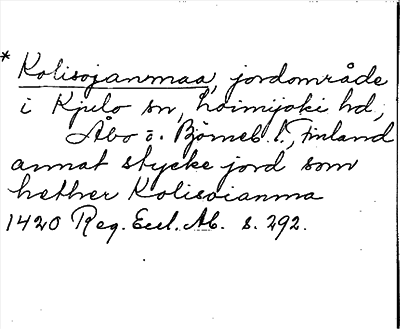 * Kolisojanmaa, jordområde
i Kjulo sn, Loimijoki hd,
Åbo o. Björneb. l., Finland
annat stycke jord som
hether Kolisoianma
1420 Reg. Eccl. Ab. s. 292.